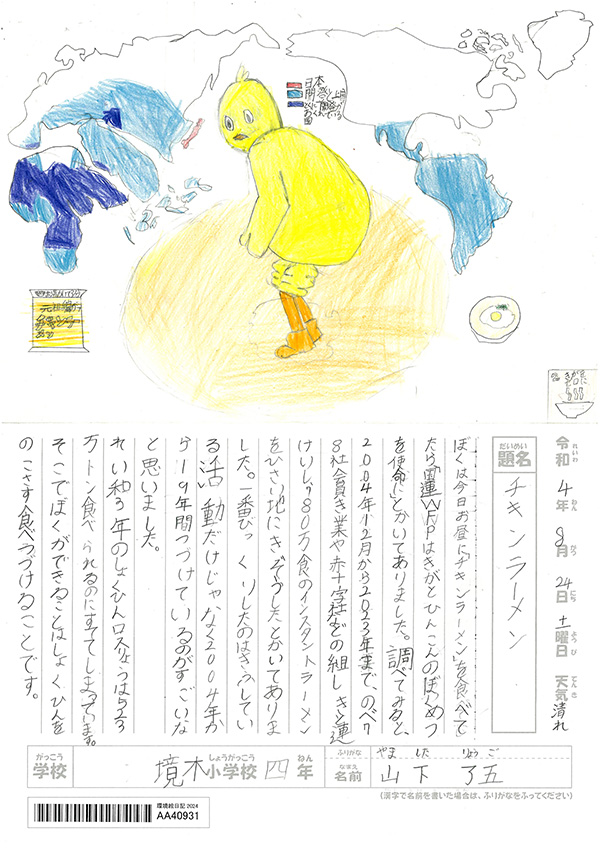 日本
だいめい
題名
チキンラーメン
れいわ
令和4年8月24日土曜日
ねん
がつ
にち
ようび
てんき
天気 清れ
ぼくは今日お昼に「チキンラーメン」を食べて
たら「国連WFPはきがとひんこんのぼくめつ
を使命」とかいてありました。調べてみると、
2004年12月から2023年まで、のべ7
8社会員き業や赤十字社などの組しきと連
けいし、80万食のインスタントラーメン
をひさい地にきぞうしたとかいてありま
した。一番びっくりしたのはきふしてい
る活動だけじゃなく2004年か
ら19年間つづけているのがすごいな
と思いました。
れい和3年のしょくひんロスりょうは523
万トン食べられるのにすててしまっています。
そこでぼくができることはしょくひんを
のこさず食べつづけることです。
がっこう
学校
境木小学校四年
しょうがっこう
ねん
ふりがな
やました りょうご
なまえ
名前
山下 了五
(漢字で名前を書いた場合は、ふりがなをふってください)
環境絵日記 2024
AA40931